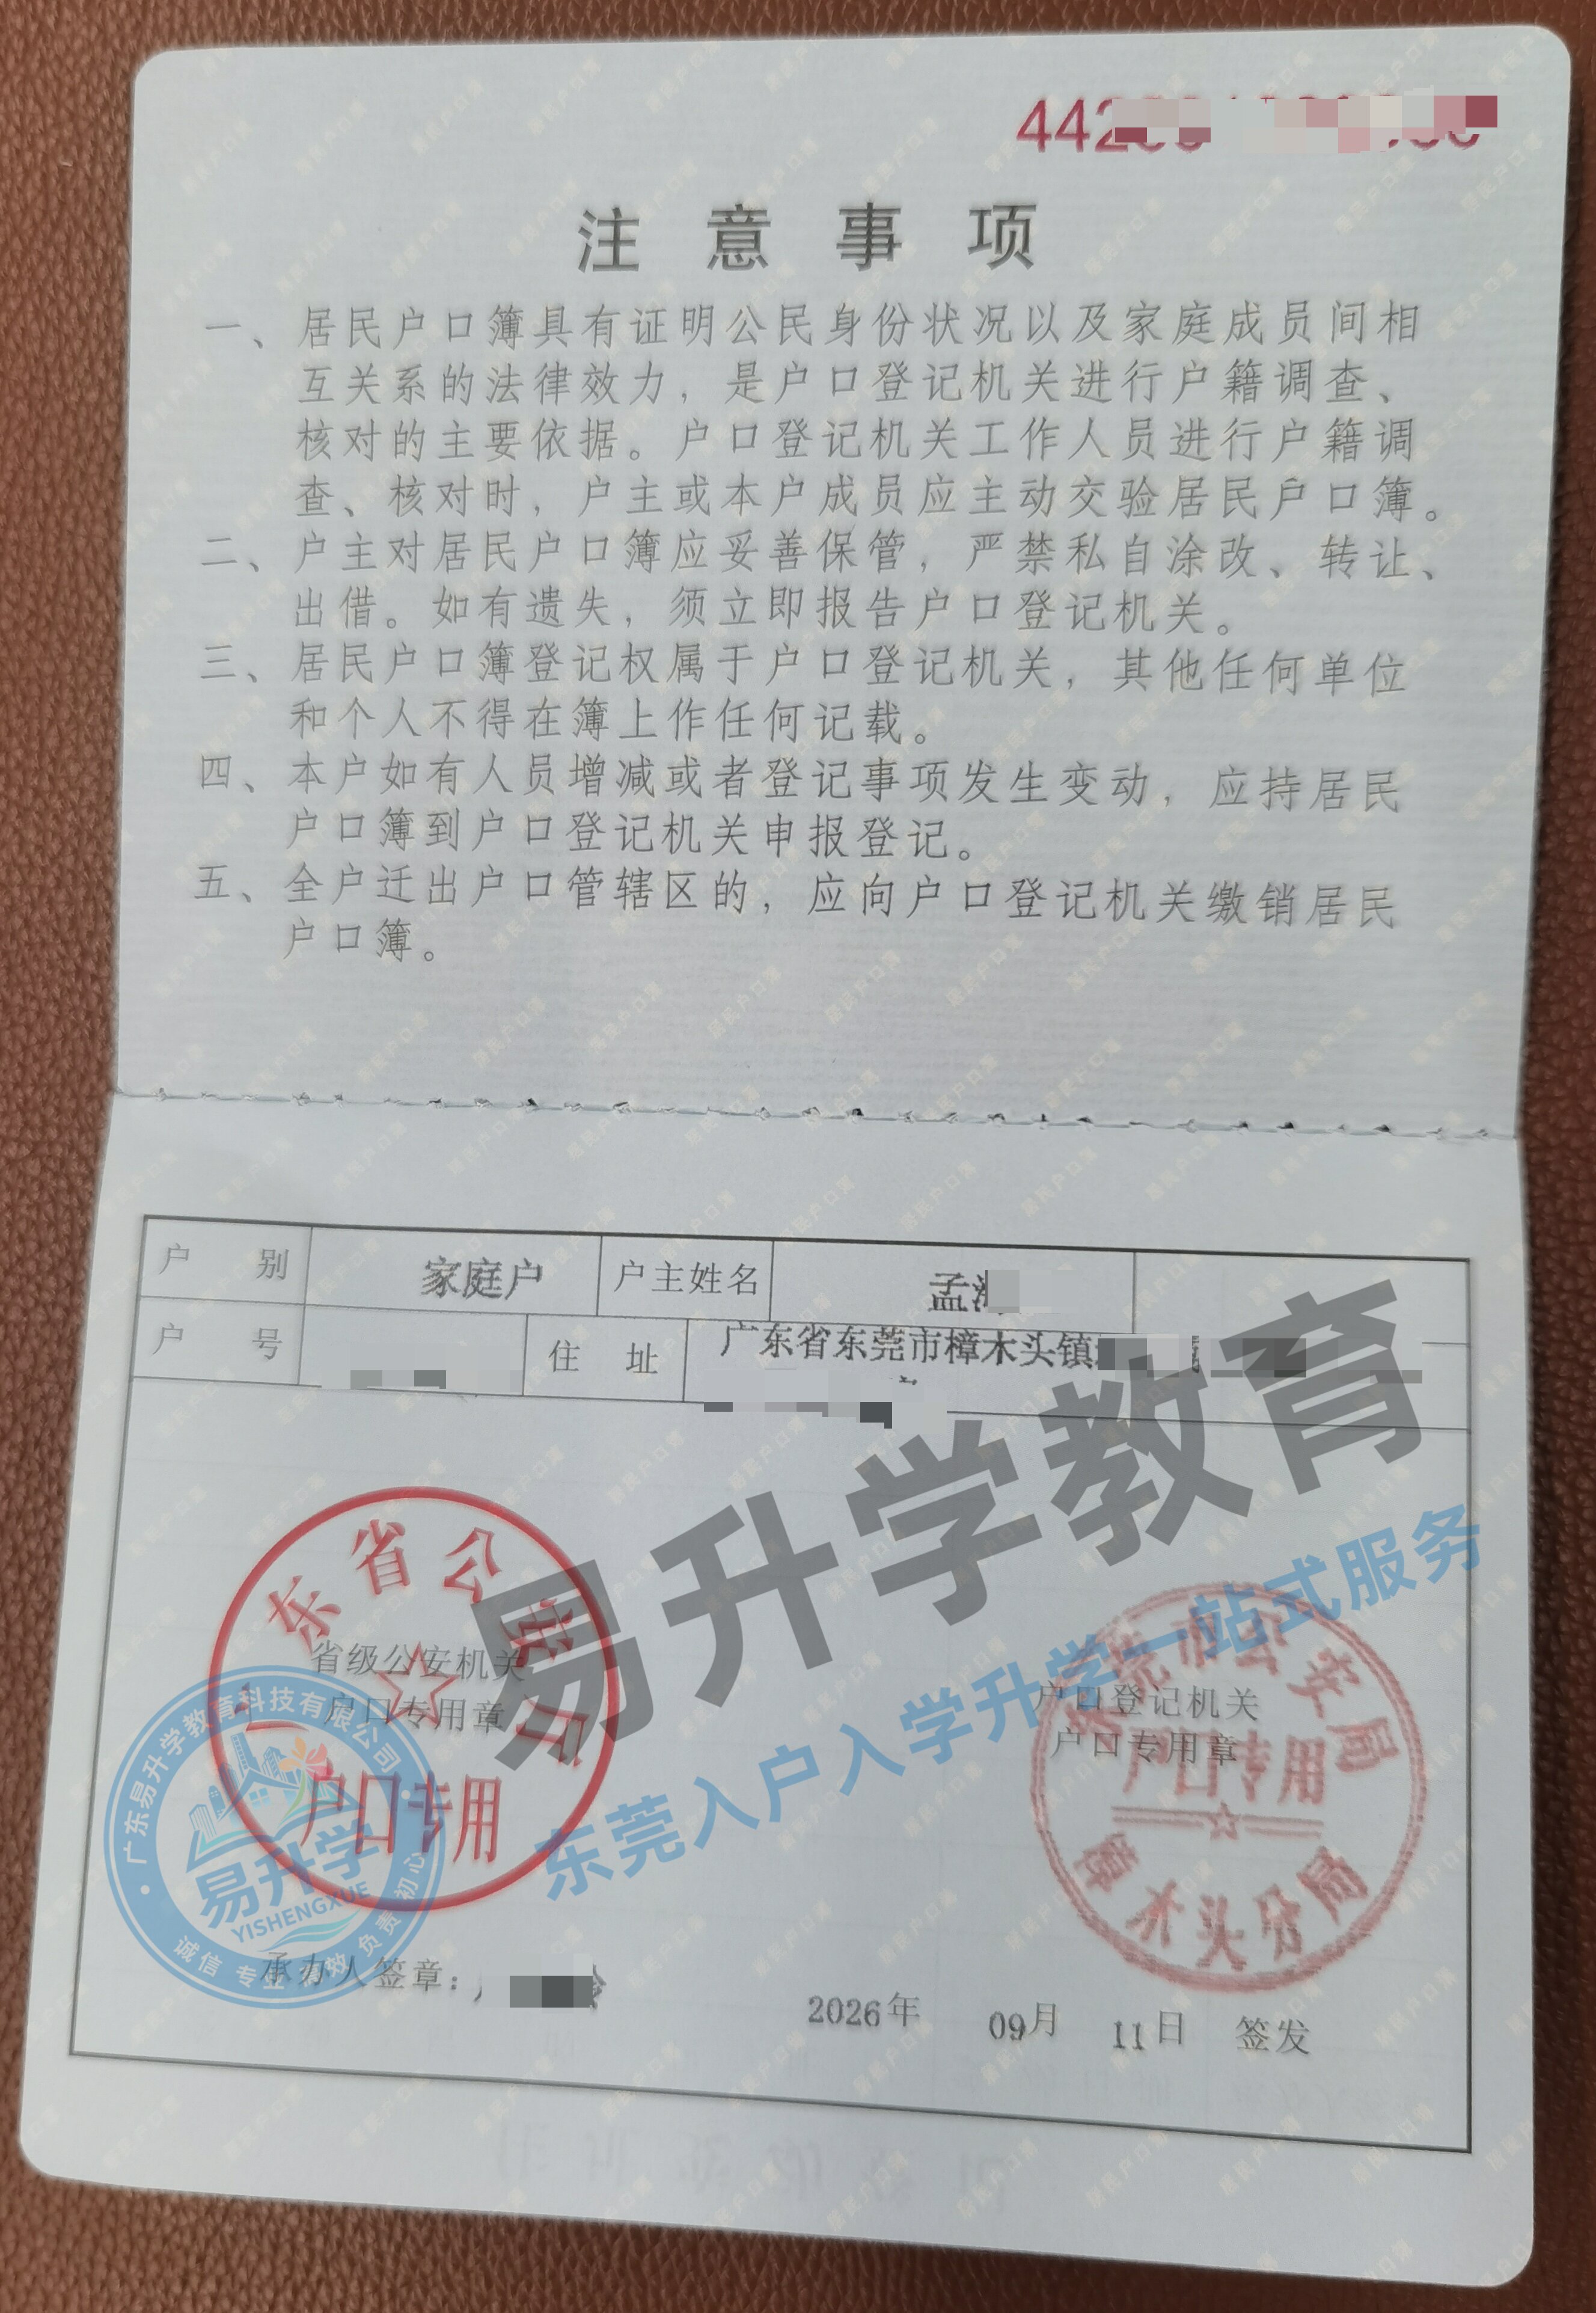 442
注意事项
一、居民户口簿具有证明公民身份状况以及家庭成员间相
互关系的法律效力，是户口登记机关进行户籍调查、
核对的主要依据。户口登记机关工作人员进行户籍调
查、核对时，户主或本户成员应主动交验居民户口簿。
二、户主对居民户口簿应妥善保管，严禁私自涂改、转让、
出借。如有遗失，须立即报告户口登记机关。
三、居民户口簿登记权属于户口登记机关，其他任何单位
和个人不得在簿上作任何记载。
四、本户如有人员增减或者登记事项发生变动，应持居民
户口簿到户口登记机关申报登记。
五、全户迁出户口管辖区的，应向户口登记机关缴销居民
户口簿。
户别 家庭户 户主姓名 孟
户号 住址 广东省东莞市樟木头镇
易升学教育
东莞入户入学升学一站式服务
东省公安厅
省级公安机关
户口专用章
户口专用
莞市公安局
户口登记机关
户口专用章
户口专用
樟木头分局
广东易升学教育科技有限公司
易升学
YISHENGXUE
诚信 专业 高效 负责 初心
承办人签章：
2026年 09月 11日 签发